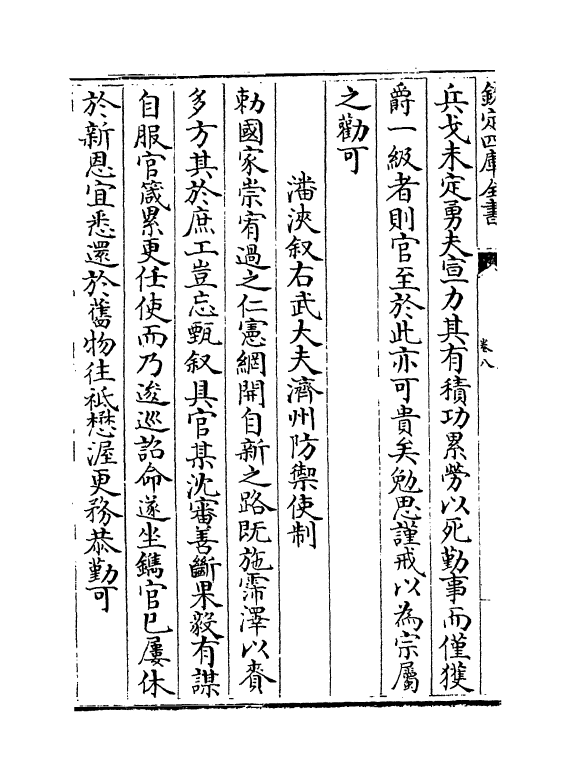 欽定四庫全書
卷八
兵戈未定勇夫宣力其有積功累勞以死勤事而僅獲
爵一級者則官至於此亦可貴矣勉思謹戒以為宗屬
之勸可
潘浹叙右武大夫濟州防禦使制
勅國家崇宥過之仁憲網開自新之路既施霈澤以賚
多方其於庶工豈忘甄叙具官某沈審善斷果毅有謀
自服官箴累更任使而乃逡巡詔命遂坐鐫官已屢休
於新恩宜悉還於舊物往祗懋渥更務恭勤可